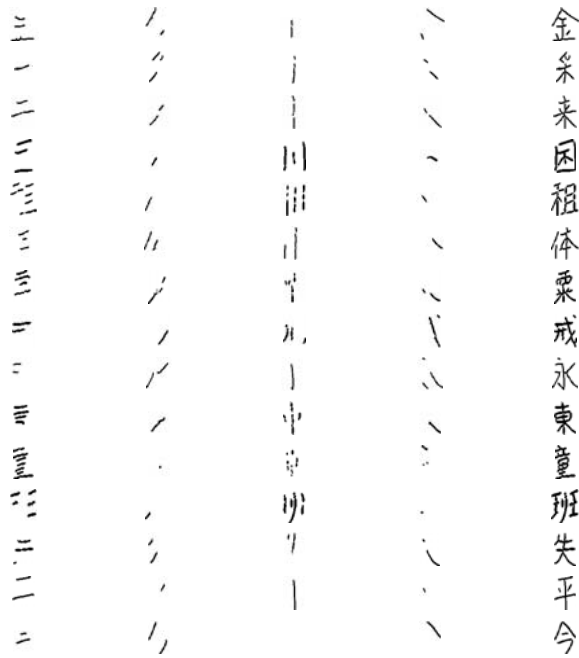 金
采
来
困
租
体
粟
戒
永
東
童
班
失
平
今